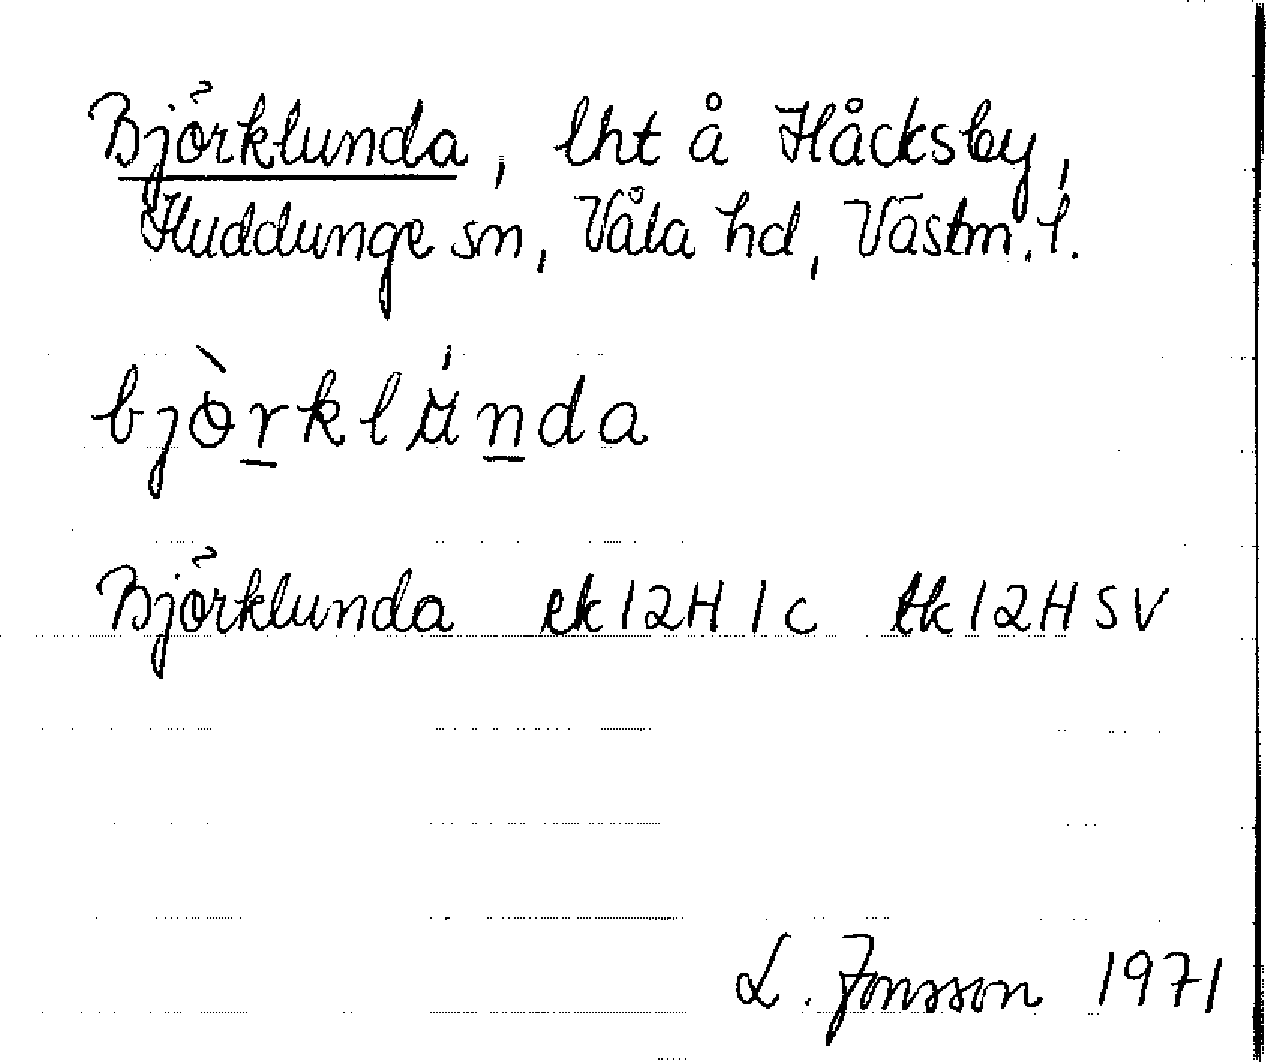 Björklunda, lht å Håcksby,
Huddunge sn, Våla hd, Västm. l.
bjòrklúnda
Björklunda ek 12H 1c tk 12H SV
L. Jonsson 1971